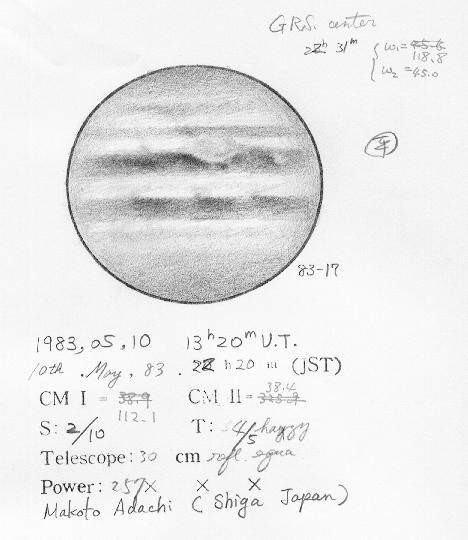 GRS. center
22h 31m
ω1 = 45.6
118.8
ω2 = 45.0
83-17
1983, 05, 10 13h 20m U.T.
10th. May, 83. 22 h 20 m (JST)
CM I = 38.9 CM II = 38.4
112.1
S: 2/10 T: 4/5 hazzy
Telescope: 30 cm refl. equa
Power: 257× × ×
Makoto Adachi (Shiga Japan)